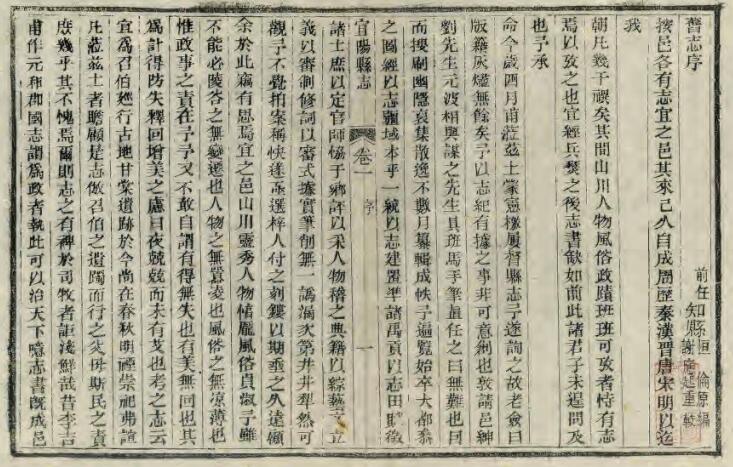 舊志序
前任知縣 桓倫原編
謝應起重輯
按邑各有志宜之邑其來已久自成周歷秦漢晉唐宋明以迄
我
朝凡幾千禩矣其間山川人物風俗政蹟班班可攷者恃有志
焉以攷之也宜經兵燹之後志書缺如前此諸君子未遑問及
也予承
命今歲四月甫蒞茲土蒙憲檄屢督縣志予遂詢之故老僉曰
版籍灰燼無餘矣予以志紀有據之事非可意創也敦請邑紳
劉先生元波相與謀之先生具班馬手筆量任之曰無難也因
而搜剔幽隱裒集散逸不數月纂輯成帙予遍覽始卒大都黍
之圖經以志疆域本乎一統以志建置準諸禹貢以志田賦徵
宜陽縣志
卷一
序
一
諸士庶以定官師協于鄉評以采人物稽之典籍以綜藝文立
義以審制修詞以審式據實筆削無一譌漏次第井井犁然可
觀予不覺拍案稱快遂亟選梓人付之剞鏤以期垂之久遠顧
余於此竊有思焉宜之邑山川靈秀人物惇龐風俗貞淑予雖
不能必陵谷之無變遷也人物之無囂凌也風俗之無涼薄也
惟政事之責在予予又不敢自謂有得無失也有美無回也其
為計得防失釋回增美之慮日夜兢兢而未有艾也考之志云
宜為召伯廵行古地甘棠遺跡於今尚在春秋明禋崇祀弗諠
凡蒞茲土者瞻顧是志傚召伯之遺躅而行之父母斯民之責
庶幾乎其不愧焉爾則志之有裨於司牧者詎淺鮮哉昔李吉
甫作元和郡國志謂為政者執此可以治天下噫志書旣成邑